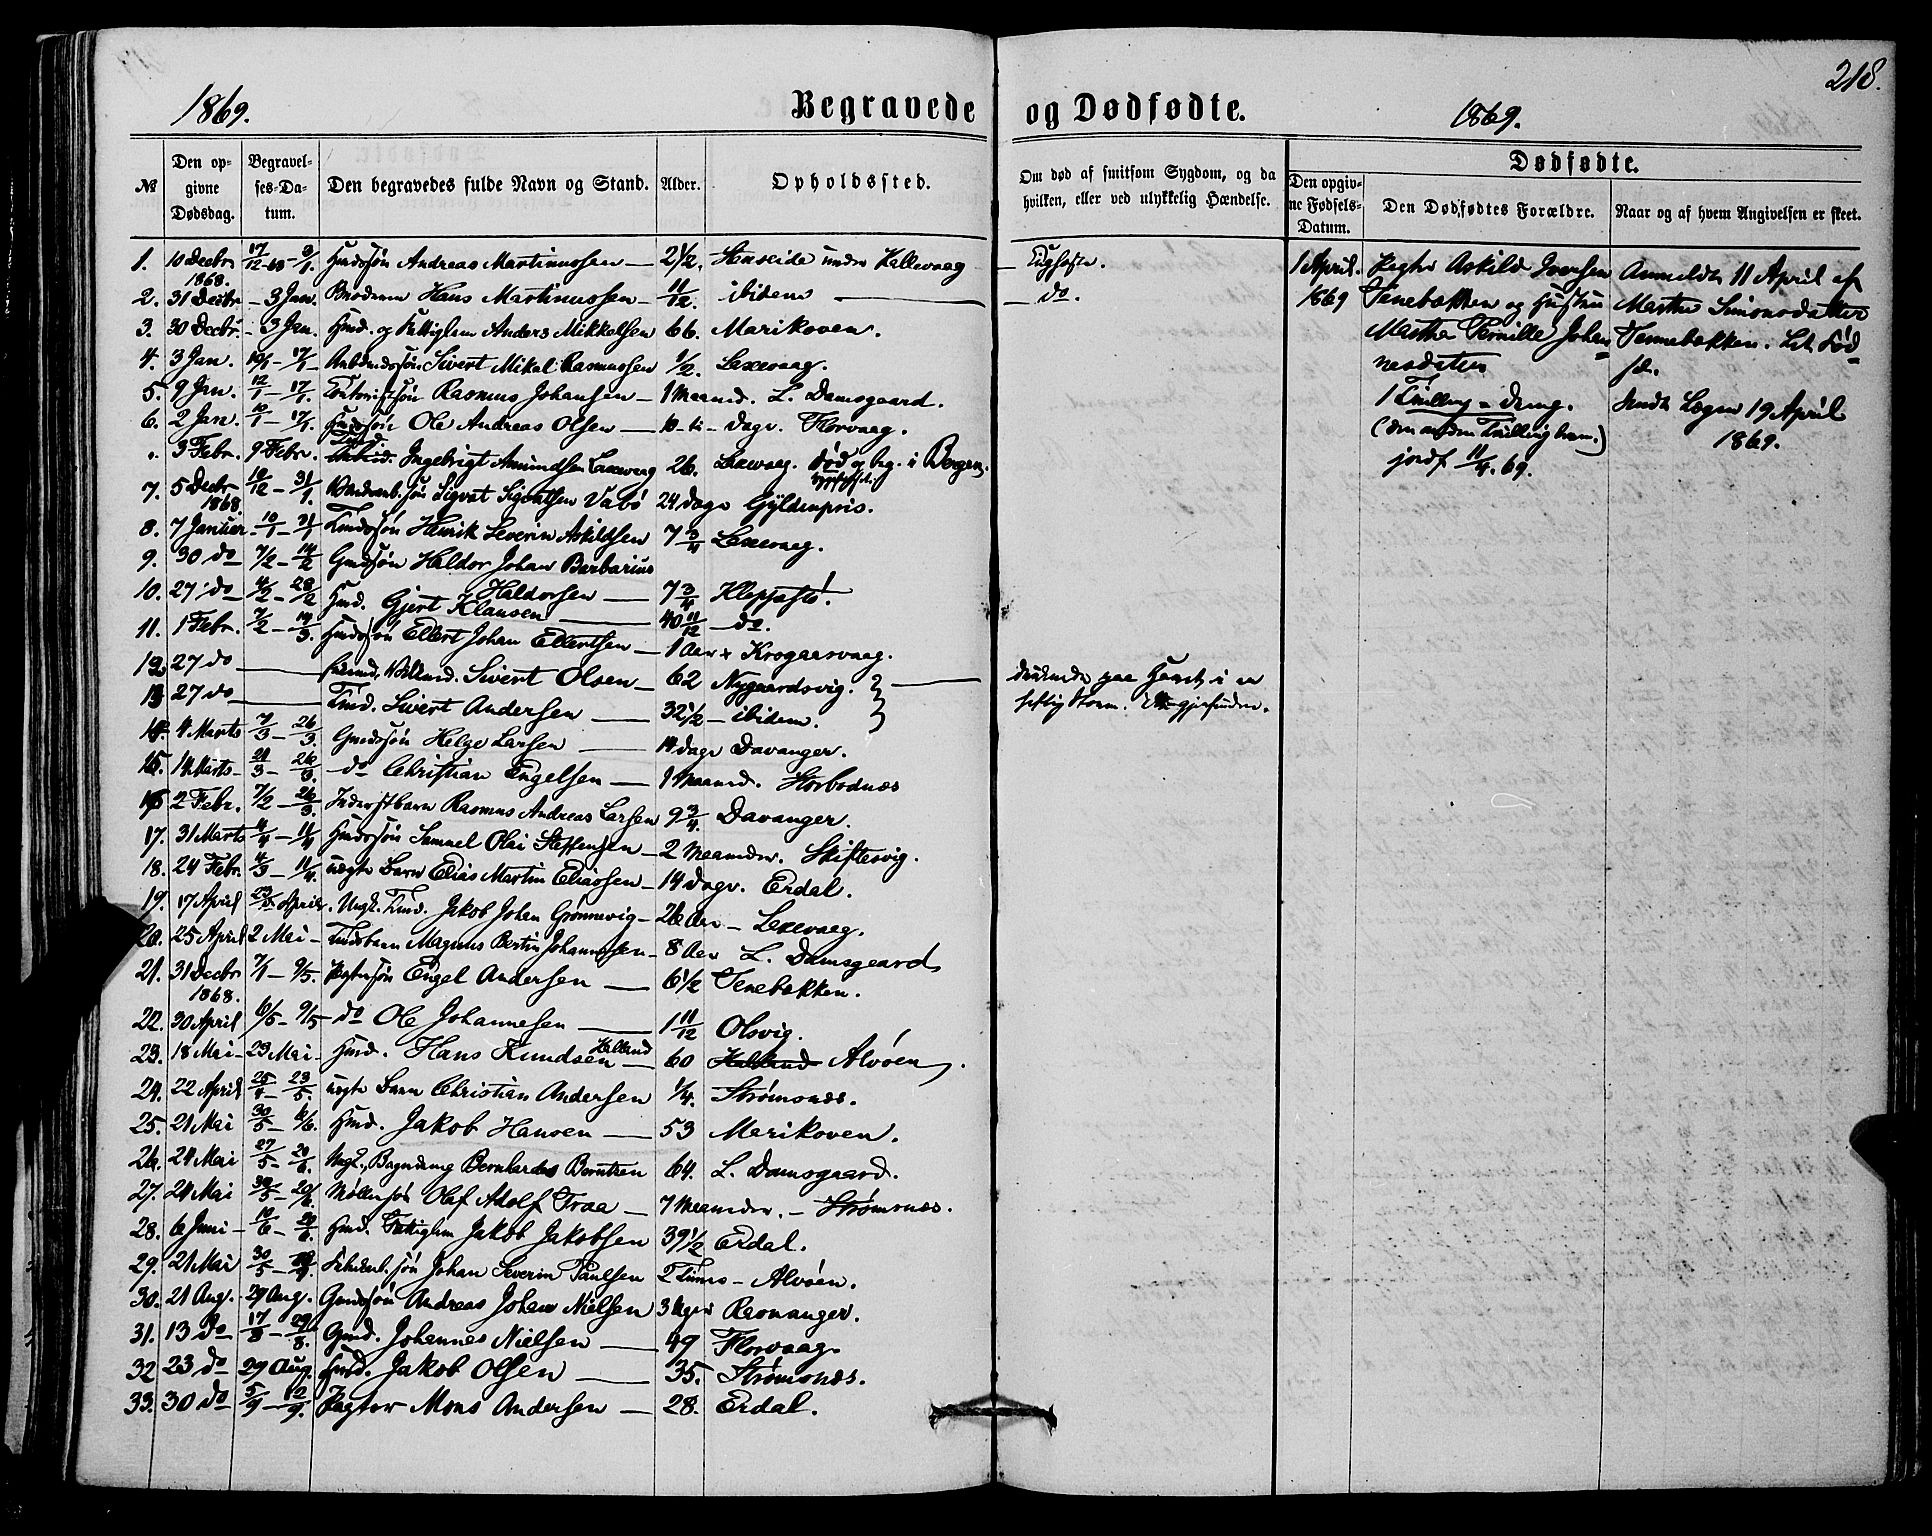 218.
1869. Begravede og Dødfødte. 1869.
Dødfødte.
№ Den opgivne Dødsdag. Begravelses-Datum. Den begravedes fulde Navn og Stand. Alder. Opholdssted. Om død af smitsom Sygdom, og da hvilken, eller ved ulykkelig Hændelse. Den opgivne Fødsels-Datum. Den Dødfødtes Forældre. Naar og af hvem Angivelsen er skeet.
1. 10 Decbr 1868. 17/12 68 - 3/1. Andreas Martinussen — 2 1/2. under Hallevaag
2. 31 Decbr — 3 Jan. Broderen Hans Martinussen — 11/12. ibidem — do.
3. 30 Decbr. — 3 Jan. Hmd. og Anders Mikkelsen 66. Marikoven.
4. 3 Jan. 10/1 — 17/1 — Sivert Mikal Rasmussen 1/2. Laxevaag.
5. 9 Jan. 12/1 — 17/1. Rasmus Johansen — 1 Maaned. L. Damsgaard.
6. 2 Jan. 10/1 — 17/1. Ole Andreas Olsen — 10 ti - dage. Florvaag.
3 Febr. 9 Febr. Ingebrigt Amundsen Laxevaag 26. Laxevaag. død og beg. i Bergen.
7. 5 Decbr 1868. 12/12 — 31/1. Sigvat Sigvatsen Vabø 24 dage Gyldenpris.
8. 7 Januar 10/1 — 31/1 Henrik Severin Askildsen 7 3/4 Laxevaag.
9. 30 do 7/2 — 14/2 Gmdssøn Haldor Johan Barbarius Haldorsen — 7 3/4 Kleppestø.
10. 27 do 4/2 — 28/2 Hmd. Gjert Klausen — 40 11/12 — do.
11. 1 Febr. 7/2 — 14/3. Hmdssøn Ellert Johan Ellertsen — 1 Aar Krogaasvaag.
12. 27 do — Sivert Olsen — 62 Nygaardsvig.
13. 27 do — Sivert Andersen — 32 1/2 — ibidem.
druknede paa Havet i en
heftig Storm.
14. 4 Marts 7/3 — 26/3. Gmdssøn Helge Larsen — 14 dage Davanger.
15. 14 Marts — 21/3 — 26/3. do Christian Engelsen — 1 Maaned. Storbodnæs
16. 2 Febr. 7/2 — 26/3. Inderstbarn Rasmus Andreas Larsen 9 3/4. Davanger.
17. 31 Marts 4/4 — 11/4 Hmdssøn Samuel Olai Steffensen — 2 Maaneder. Skiftesvig.
18. 24 Febr. 4/3 — 11/4. uægte Barn Elias Martin Eliassen — 14 dage. Erdal.
19. 17 April 23 April. Ungk. Jakob Johan Grønnevig — 26 Aar — Laxevaag.
20. 25 April 2 Mai — Magnus Bertin Johannessen — 8 Aar L. Damsgaard
21. 31 Decbr 1868. 7/1 — 9/5. Engel Andersen — 6 1/2 Tenebækken.
22. 30 April 6/5 — 9/5 — do Ole Johannesen — 1 11/12 Olsvig.
23. 18 Mai — 23 Mai. Hmd. Hans Knudsen Helland — 60 Helland Alvøen.
24. 22 April 25/4 — 23/5. uægte Barn Christian Andersen 1/4. Strømsnæs.
25. 21 Mai 30/5 — 6/6. Hmd. Jakob Hansen — 53 Marikoven.
26. 24 Mai 27/5 — 20/6. Bernhardus Berntsen 64. L. Damsgaard.
27. 24 Mai 30/5 — 20/6 Olaf Adolf Traa — 7 Maaneder. — Strømsnæs.
28. 6 Juni — 10/6 — 20/6. Hmd. Jakob Jakobsen 39 1/2 Erdal.
29. 21 Mai 30/5 Johan Severin Paulsen 2 Timer — Alvøen.
30. 21 Aug. 29 Aug. Gmdssøn Andreas Johan Nielsen 3 Uger Ravnanger.
31. 13 do 17/8 — 29/8. Gmd. Johannes Nielsen — 49 Florvaag
32 23 do 29 Aug. Hmd. Jakob Olsen — 35. Strømsnæs.
33. 30 do 5/9 — 12/9. Jægter Mons Andersen — 28. Erdal.
1 April. 1869
Askild Iversen
Tenebækken og Hustru
Marthe Pernille Johannesdatter
1 Tvilling — dreng.
(den anden Tvilling hjem.)
jordf 11/4. 69.
Anmeldt 11 April af
Marthe Simonsdatter
Tennebækken.
Sendt Lægen 19 April
1869.